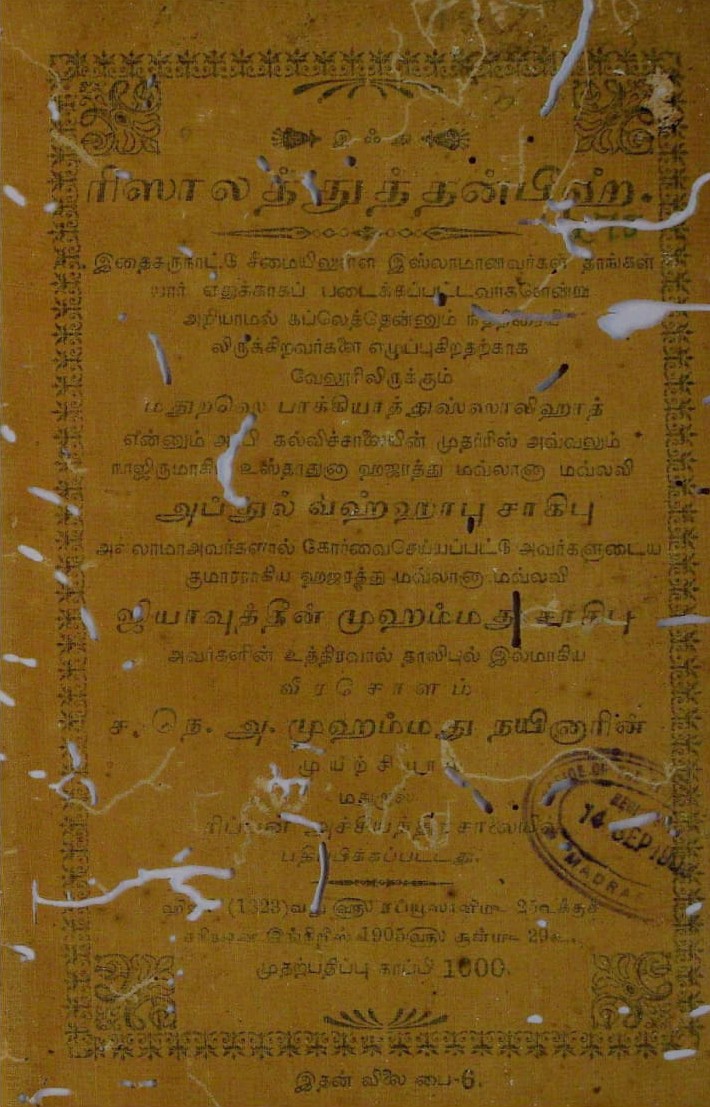 ரிஸாலத்துத்தன்பீஹே.
இதைகருநாட்டு சீமையிலுள்ள இஸ்லாமானவர்கள் தாங்கள்
யார் எதுக்காகப் படைக்கப்பட்டவர்களென்று
அறியாமல் கப்லெத்தென்னும்
லிருக்கிறவர்களை எழுப்புகிறதற்காக
வேலூரிலிருக்கும்
மதுறஸெ பாக்கியாத்துஸ்ஸாலிஹாத்
என்னும் அரபி கல்விச்சாலையின் முதர்ரிஸ் அவ்வலும்
நாஜிருமாகிய உஸ்தாதுனா ஹஜரத்து மவ்லானா மவ்லவி
அப்துல் வஹ்ஹாபு சாகிபு
அல்லாமாஅவர்களால் கோர்வைசெய்யப்பட்டு அவர்களுடைய
குமாரராகிய ஹஜரத்து மவ்லானா மவ்லவி
ஜியாவுத்தீன் முஹம்மது சாகிபு
அவர்களின் உத்திரவால் தாலிபுல் இல்மாகிய
வீரசோளம்
ச. நெ. அ. முஹம்மது நயினாரின்
முயற்சியால்
மதராஸ்
ரிப்பன் அச்சியந்திரசாலையில்
பதிப்பிக்கப்பட்டது.
(1323)வது ௵ 25௳க்குச்
சரியான இங்கிரிஸ் 1905௵ சூன்௴ 29௳.
முதற்பதிப்பு காப்பி 1000.
இதன் விலை பை-6.
14 SEP
MADRAS